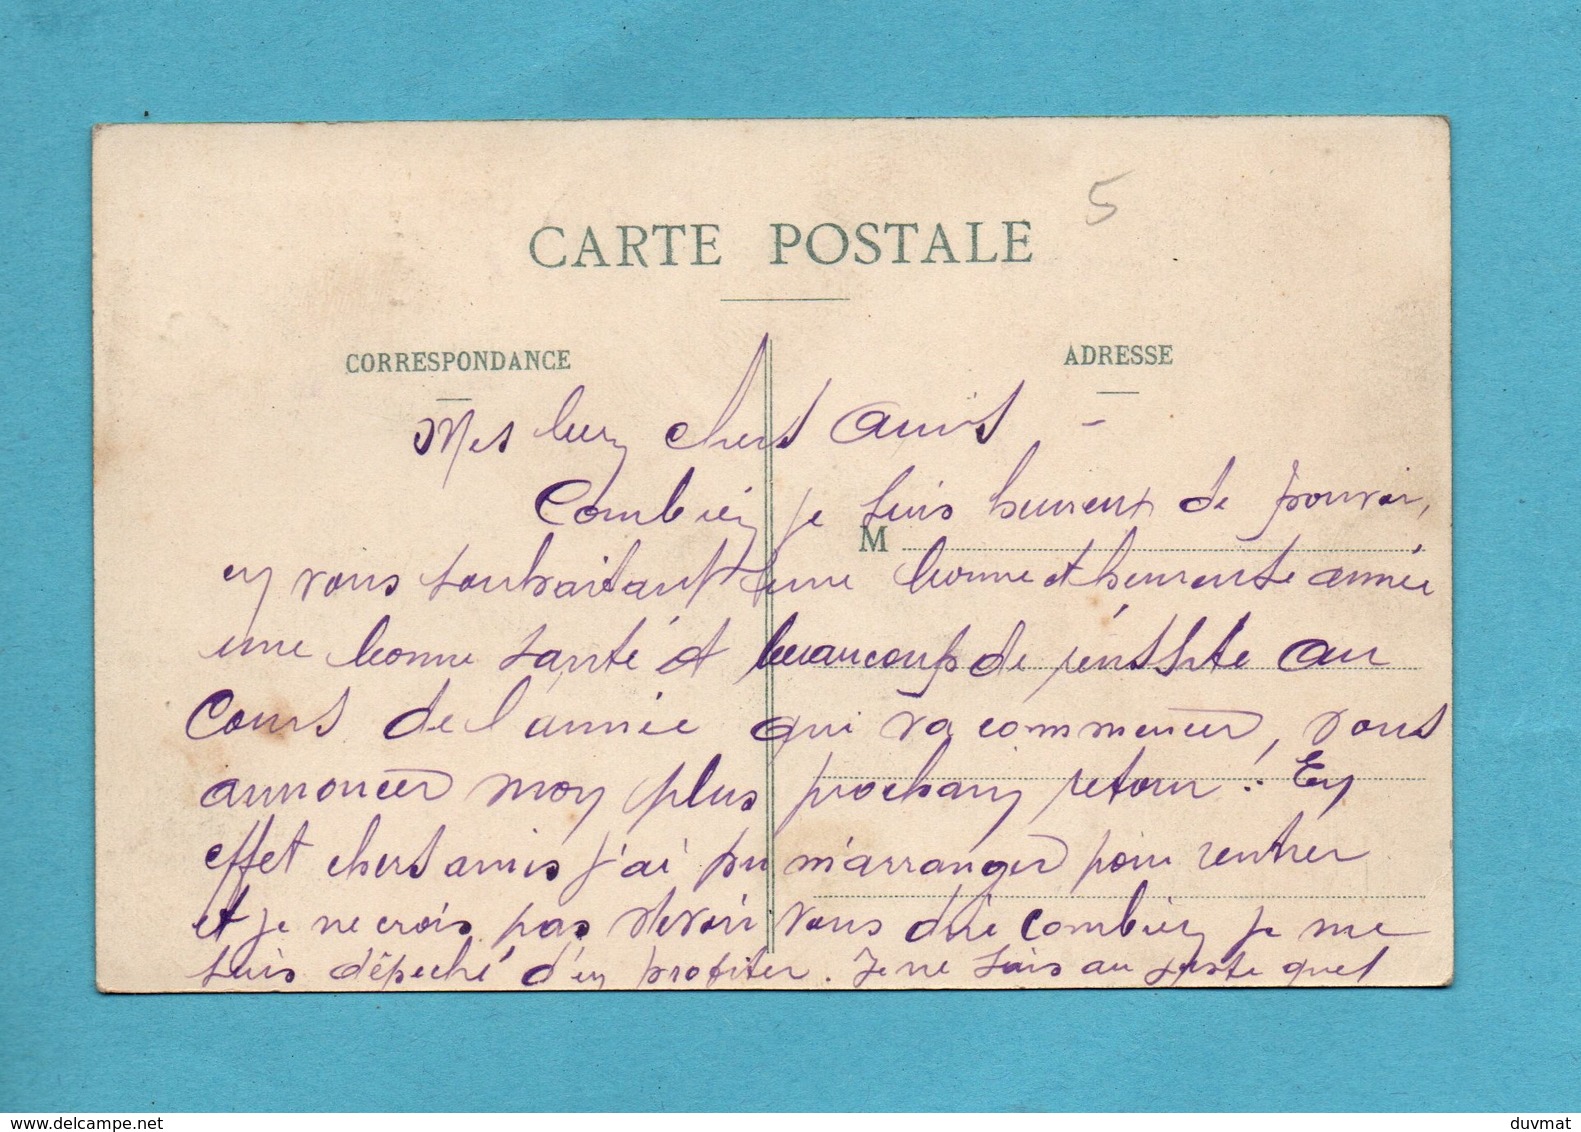 5
CARTE POSTALE
CORRESPONDANCE
ADRESSE
Mes bien chers amis -
Combien je suis heureux de pouvoir,
M
en vous souhaitant une bonne et heureuse année
une bonne santé et beaucoup de réussite au
Cours de l'année qui va commencer, vous
annoncer mon plus prochain retour !. En
effet chers amis j'ai pu m'arranger pour rentrer
et je ne crois pas devoir vous dire combien je me
suis dépeché d'en profiter. Je ne sais au juste quel
www.delcampe.net
duvmat